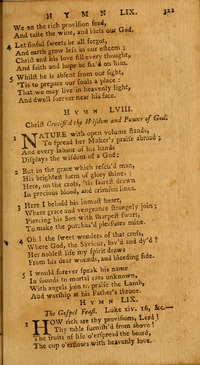 HYMN LIX. 322
We on the rich provision feed,
And taste the wine, and bless our God.
4 Let sinful sweets be all forgot,
And earth grow less in our esteem;
Christ and his love fill every thought,
And faith and hope be fix'd on him.
5 Whilst he is absent from our sight,
'Tis to prepare our souls a place:
That we may live in heavenly light,
And dwell forever near his face.
HYMN LVIII.
Christ Crucify'd the Wisdom and Power of God.
1 NATURE with open volume stands,
To spread her Maker's praise abroad;
And every labour of his hands
Displays the wisdom of a God:
2 But in the grace which rescu'd man,
His brightest form of glory shines:
Here, on the cross, 'tis fairest drawn
In precious blood, and crimson lines.
3 Here I behold his inmost heart,
Where grace and vengeance strangely join;
Piercing his Son with sharpest smart,
To make the purchas'd pleasures mine.
4 Oh! the sweet wonders of that cross,
Where God, the Saviour, lov'd and dy'd!
Her noblest life my spirit draws
From his dear wounds, and bleeding side.
5 I would forever speak his name
In sounds to mortal ears unknown,
With angels join to praise the Lamb,
And worship at his Father's throne.
HYMN LIX.
The Gospel Feast. Luke xiv. 16, &c.
1 HOW rich are thy provisions, Lord!
Thy table furnish'd from above!
The fruits of life o'erspread the board,
The cup o'erflows with heavenly love.